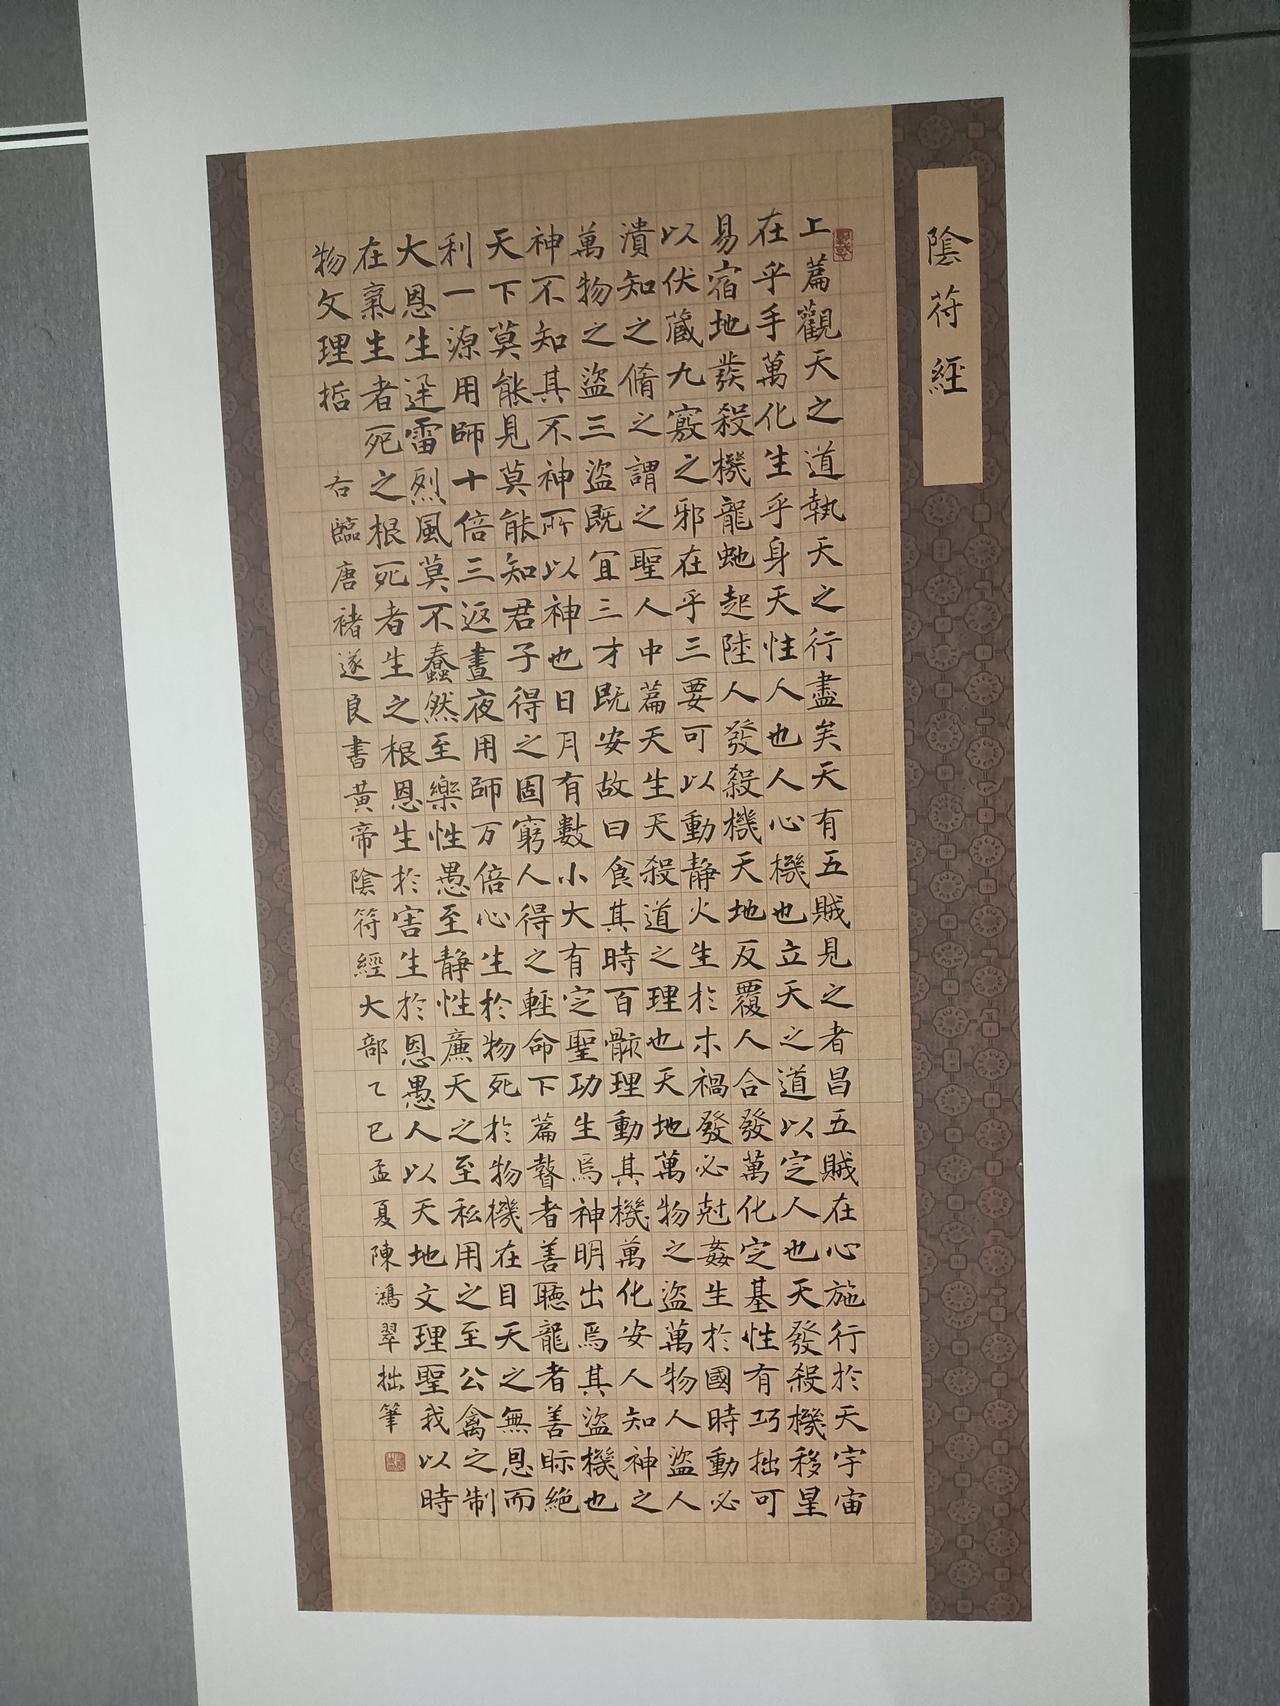 陰符經
上篇觀天之道執天之行盡矣天有五賊見之者昌五賊在心施行於天宇宙
在乎手萬化生乎身天性人也人心機也立天之道以定人也天發殺機移星
易宿地發殺機龍虵起陸人發殺機天地反覆人合發萬化定基性有巧拙可
以伏藏九竅之邪在乎三要可以動静火生於木禍發必尅姦生於國時動必
潰知之脩之謂之聖人中篇天生天殺道之理也天地萬物之盜萬物人盜人
萬物之盜三盜既宜三才既安故曰食其時百骸理動其機萬化安人知神之
神不知其不神所以神也日月有數小大有定聖功生焉神明出焉其盜機也
天下莫能見莫能知君子得之固窮人得之輕命下篇瞽者善聽龍者善眎絶
利一源用師十倍三返晝夜用師万倍心生於物死於物機在目天之無恩而
大恩生迅雷烈風莫不蠢然至樂性愚至静性廉天之至私用之至公禽之制
在氣生者死之根死者生之根恩生於害生於恩愚人以天地文理聖我以時
物文理哲 右臨唐褚遂良書黃帝陰符經大部乙巳孟夏陳鴻翠拙筆